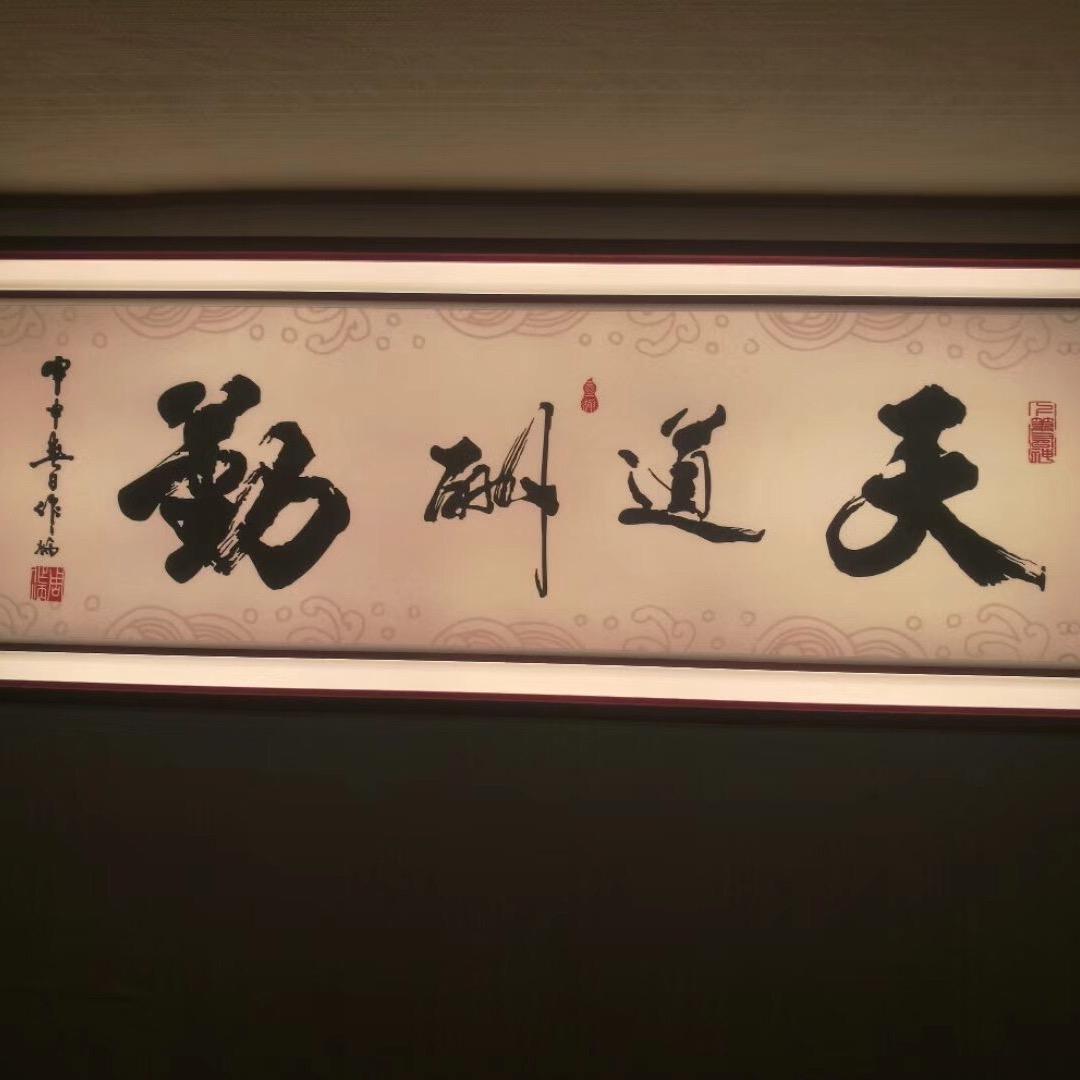 天道酬勤
甲申春日作福